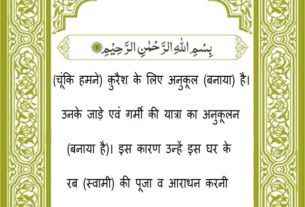 بِسْمِ اللهِ الرَّحْمٰنِ الرَّحِيْمِ
(चूंकि हमने) कुरैश के लिए अनुकूल (बनाया) है।
उनके जाड़े एवं गर्मी की यात्रा का अनुकूलन
(बनाया है)। इस कारण उन्हें इस घर के
रब (स्वामी) की पूजा व आराधन करनी